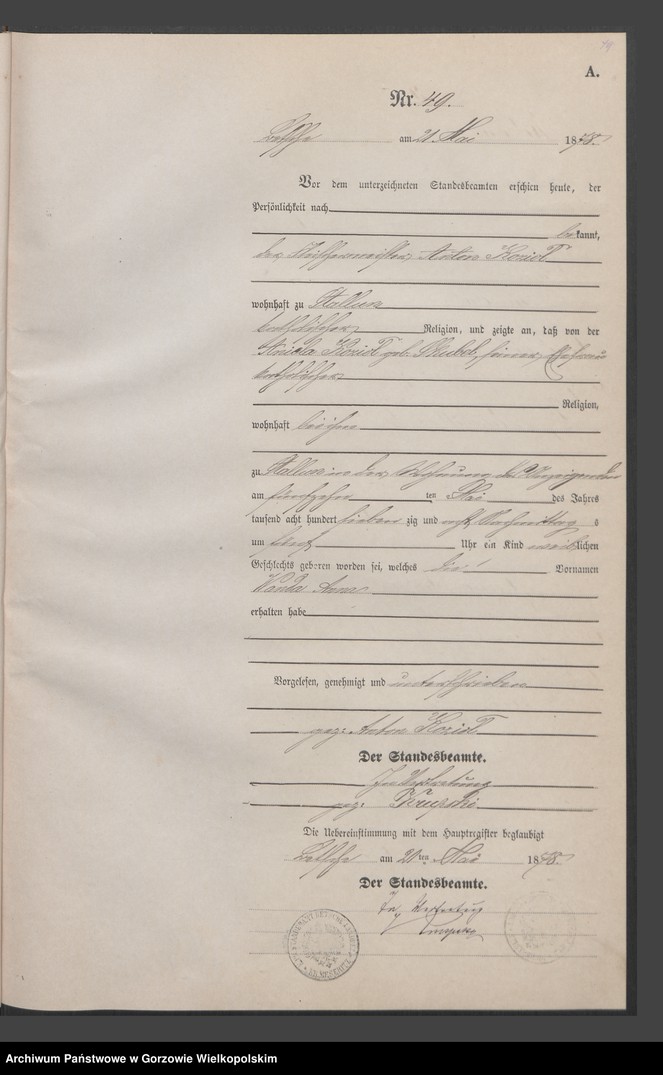 A.
Nr. 49.
Betsche am 21 Mai 1878.
Vor dem unterzeichneten Standesbeamten erschien heute, der
Persönlichkeit nach
bekannt,
der Anton
wohnhaft zu
katholischer Religion, und zeigte an, daß von der
geb. seiner Ehefrau
katholischer
Religion,
wohnhaft bei ihm
zu in der Wohnung des Anzeigenden
am fünfzehn ten Mai des Jahres
tausend acht hundert sieben zig und acht Nachmittag s
um fünf Uhr ein Kind weiblichen
Geschlechts geboren worden sei, welches die Vornamen
Wanda Anna
erhalten habe
Vorgelesen, genehmigt und unterschrieben
gez. Anton
Der Standesbeamte.
In Vertretung
gez. Krupski
Die Uebereinstimmung mit dem Hauptregister beglaubigt
Betsche am 21 ten Mai 1878.
Der Standesbeamte.
In Vertretung
Krupski
Archiwum Państwowe w Gorzowie Wielkopolskim